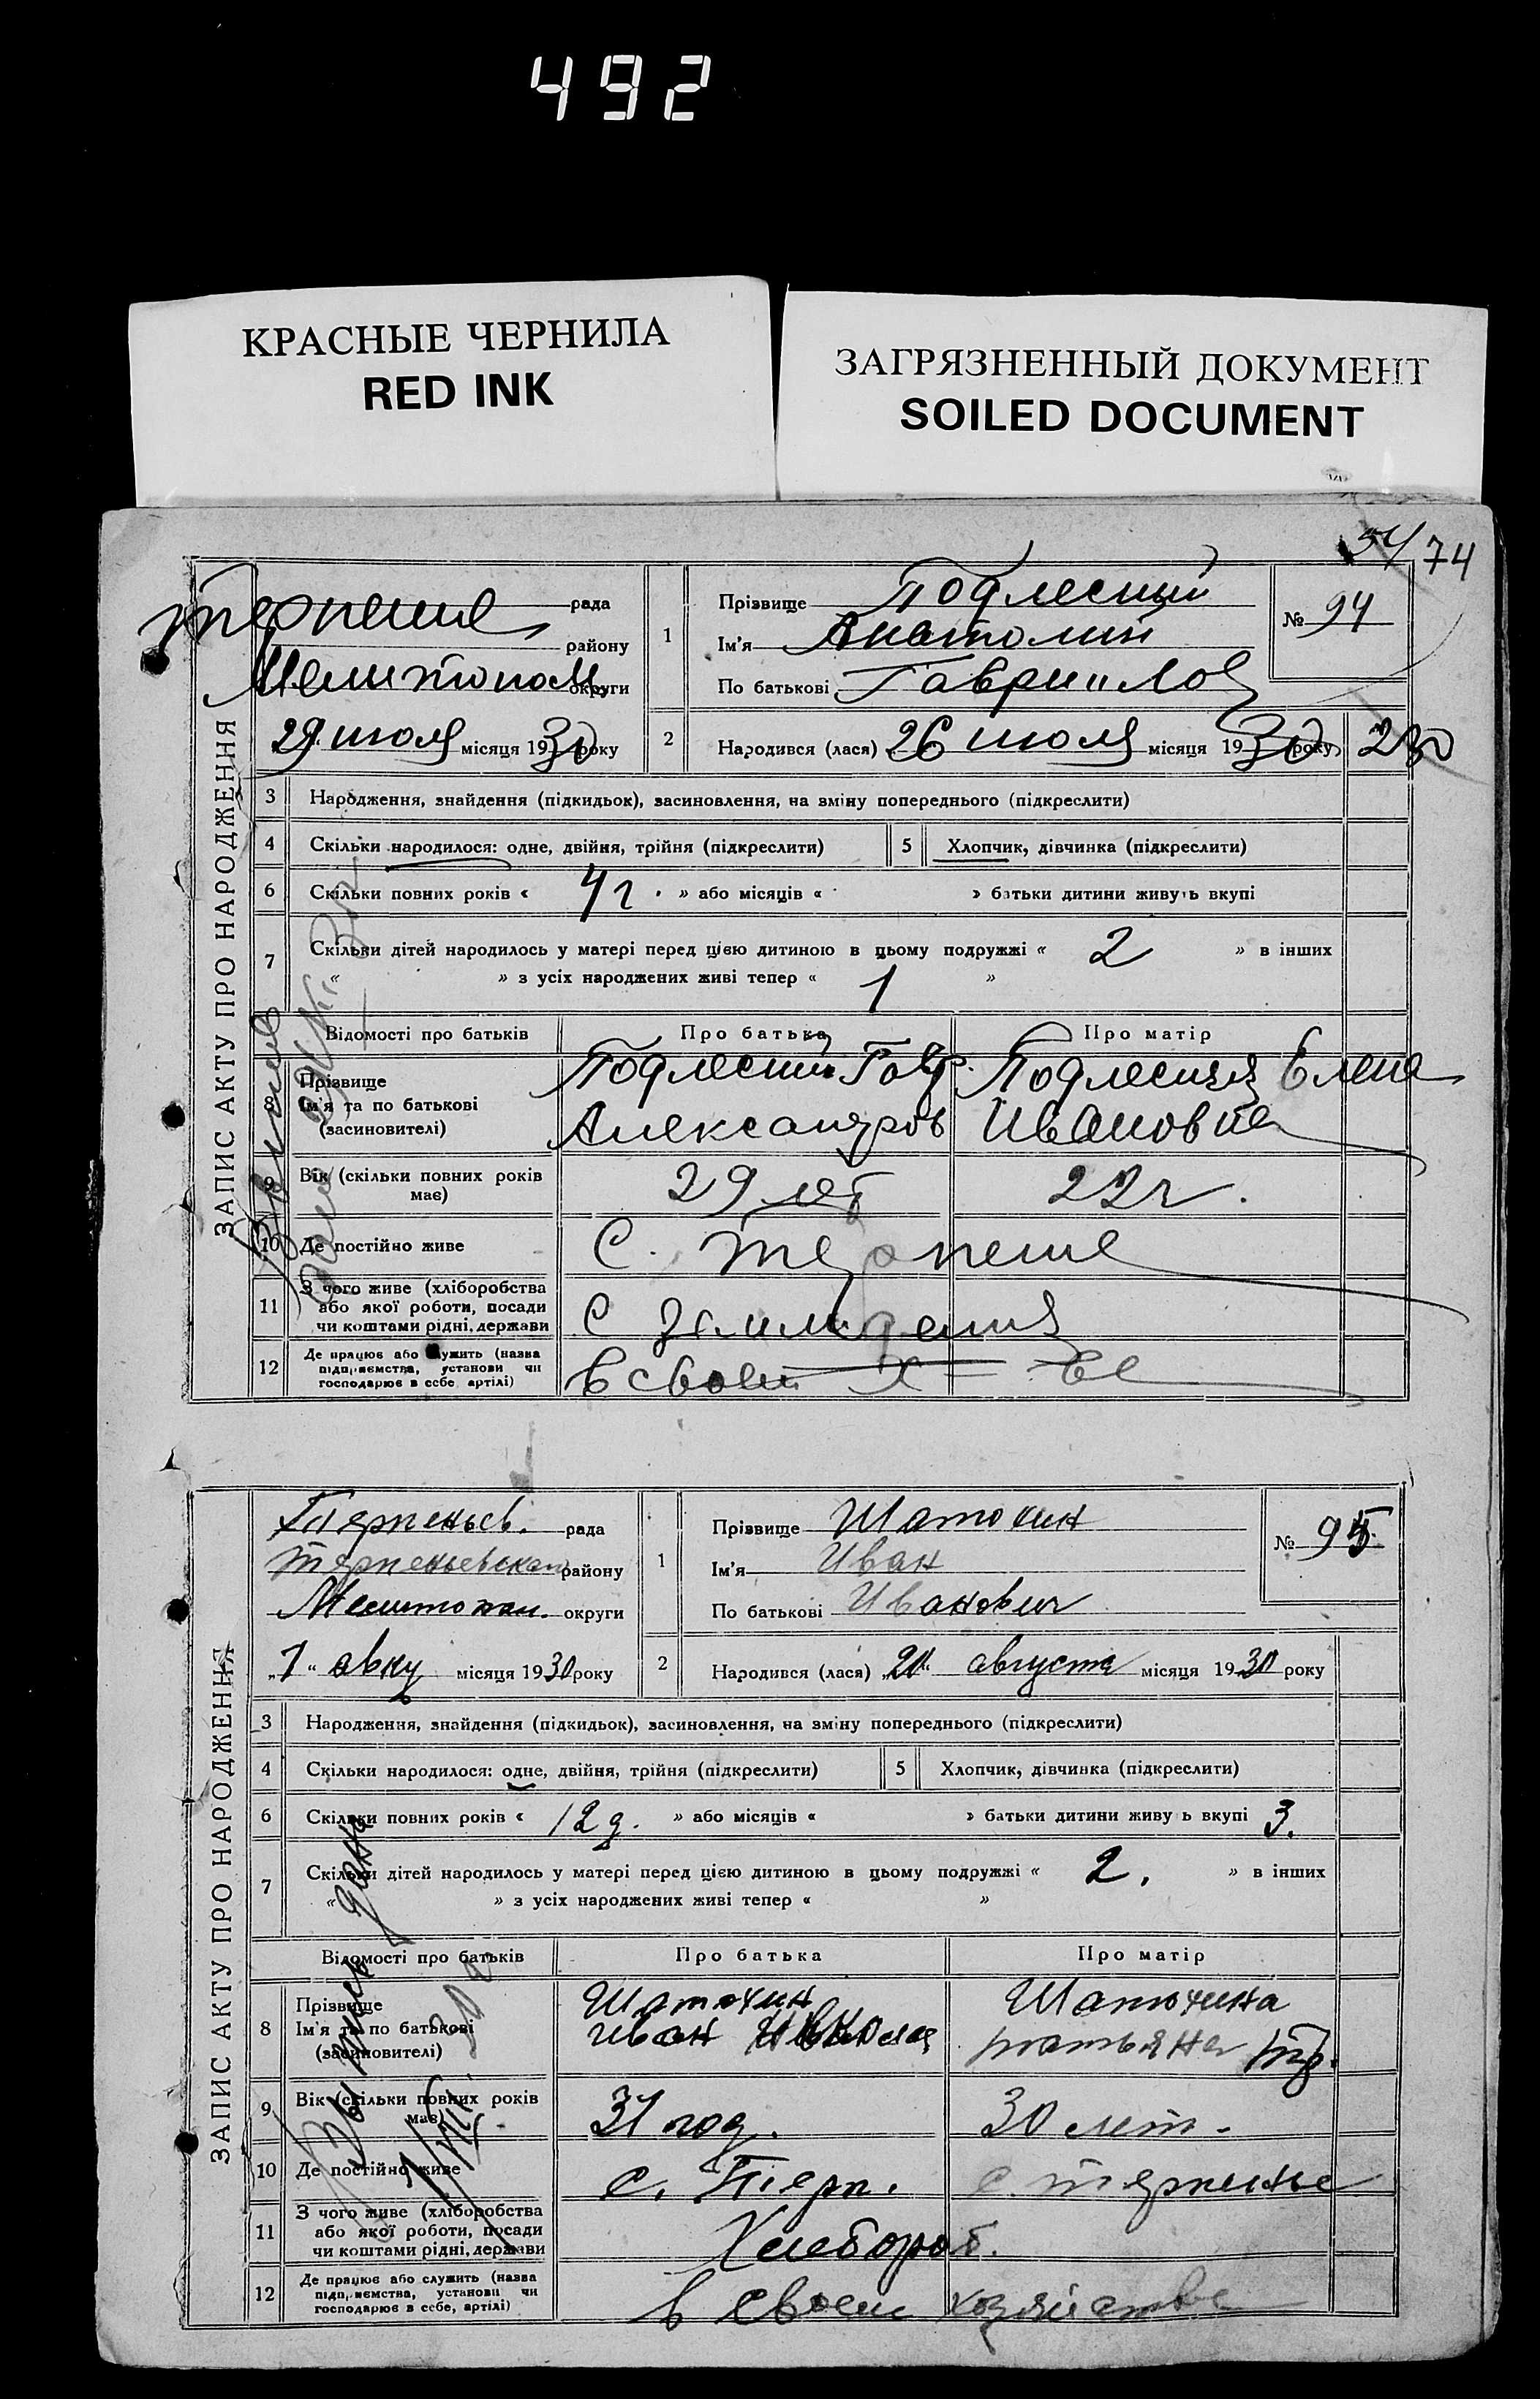 492
КРАСНЫЕ ЧЕРНИЛА
RED INK
ЗАГРЯЗНЕННЫЙ ДОКУМЕНТ
SOILED DOCUMENT
54 74
ЗАПИС АКТУ ПРО НАРОДЖЕННЯ
Терпение рада
району
Мелитопол. округи
29 июля місяця 1930 року
1 Прізвище Подлесный
Ім'я Анатолий
По батькові Гаврилов
№ 94
2 Народився (лася) 26 июля місяця 1930 року 230
3 Народження, знайдення (підкидьок), засиновлення, на зміну попереднього (підкреслити)
4 Скільки народилося: одне, двійня, трійня (підкреслити) 5 Хлопчик, дівчинка (підкреслити)
6 Скільки повних років « 4 г. » або місяців « » батьки дитини живуть вкупі
7 Скільки дітей народилось у матері перед цією дитиною в цьому подружжі « 2 » в інших
« » з усіх народжених живі тепер « 1 »
Відомості про батьків Про батька Про матір
8 Прізвище Подлесный Гавр. Подлесная Елена
Ім'я та по батькові Александров Ивановна
(засиновителі)
9 Вік (скільки повних років має) 29 лет 22 г.
10 Де постійно живе С. Терпение
11 З чого живе (хліборобства
або якої роботи, посади С земледелия
чи коштами рідні, держави
12 Де працює або служить (назва
підприємства, установи чи В своем х=ве
господарює в себе артілі)
ЗАПИС АКТУ ПРО НАРОДЖЕННЯ
Терпеньев. рада
Терпеньевскан району
Мелитопол. округи
„1“ авгу місяця 1930 року
1 Прізвище Шатохин
Ім'я Иван
По батькові Иванович
№ 95.
2 Народився (лася) августа місяця 1930 року
3 Народження, знайдення (підкидьок), засиновлення, на зміну попереднього (підкреслити)
4 Скільки народилося: одне, двійня, трійня (підкреслити) 5 Хлопчик, дівчинка (підкреслити)
6 Скільки повних років « 12 д. » або місяців « » батьки дитини живу ь вкупі 3.
7 Скільки дітей народилось у матері перед цією дитиною в цьому подружжі « 2. » в інших
« » з усіх народжених живі тепер « »
Відомості про батьків Про батька Про матір
8 Прізвище Шатохин Шатохина
Ім'я та по батькові Иван татьяна
(засиновителі)
9 Вік (скільки повних років має) 31 год. 30 лет.
10 Де постійно живе с. Терп. с. терпенье
11 З чого живе (хліборобства
або якої роботи, посади Хлебороб.
чи коштами рідні, держави
12 Де працює або служить (назва
підприємства, установи чи в своем хозяйстве
господарює в себе, артілі)